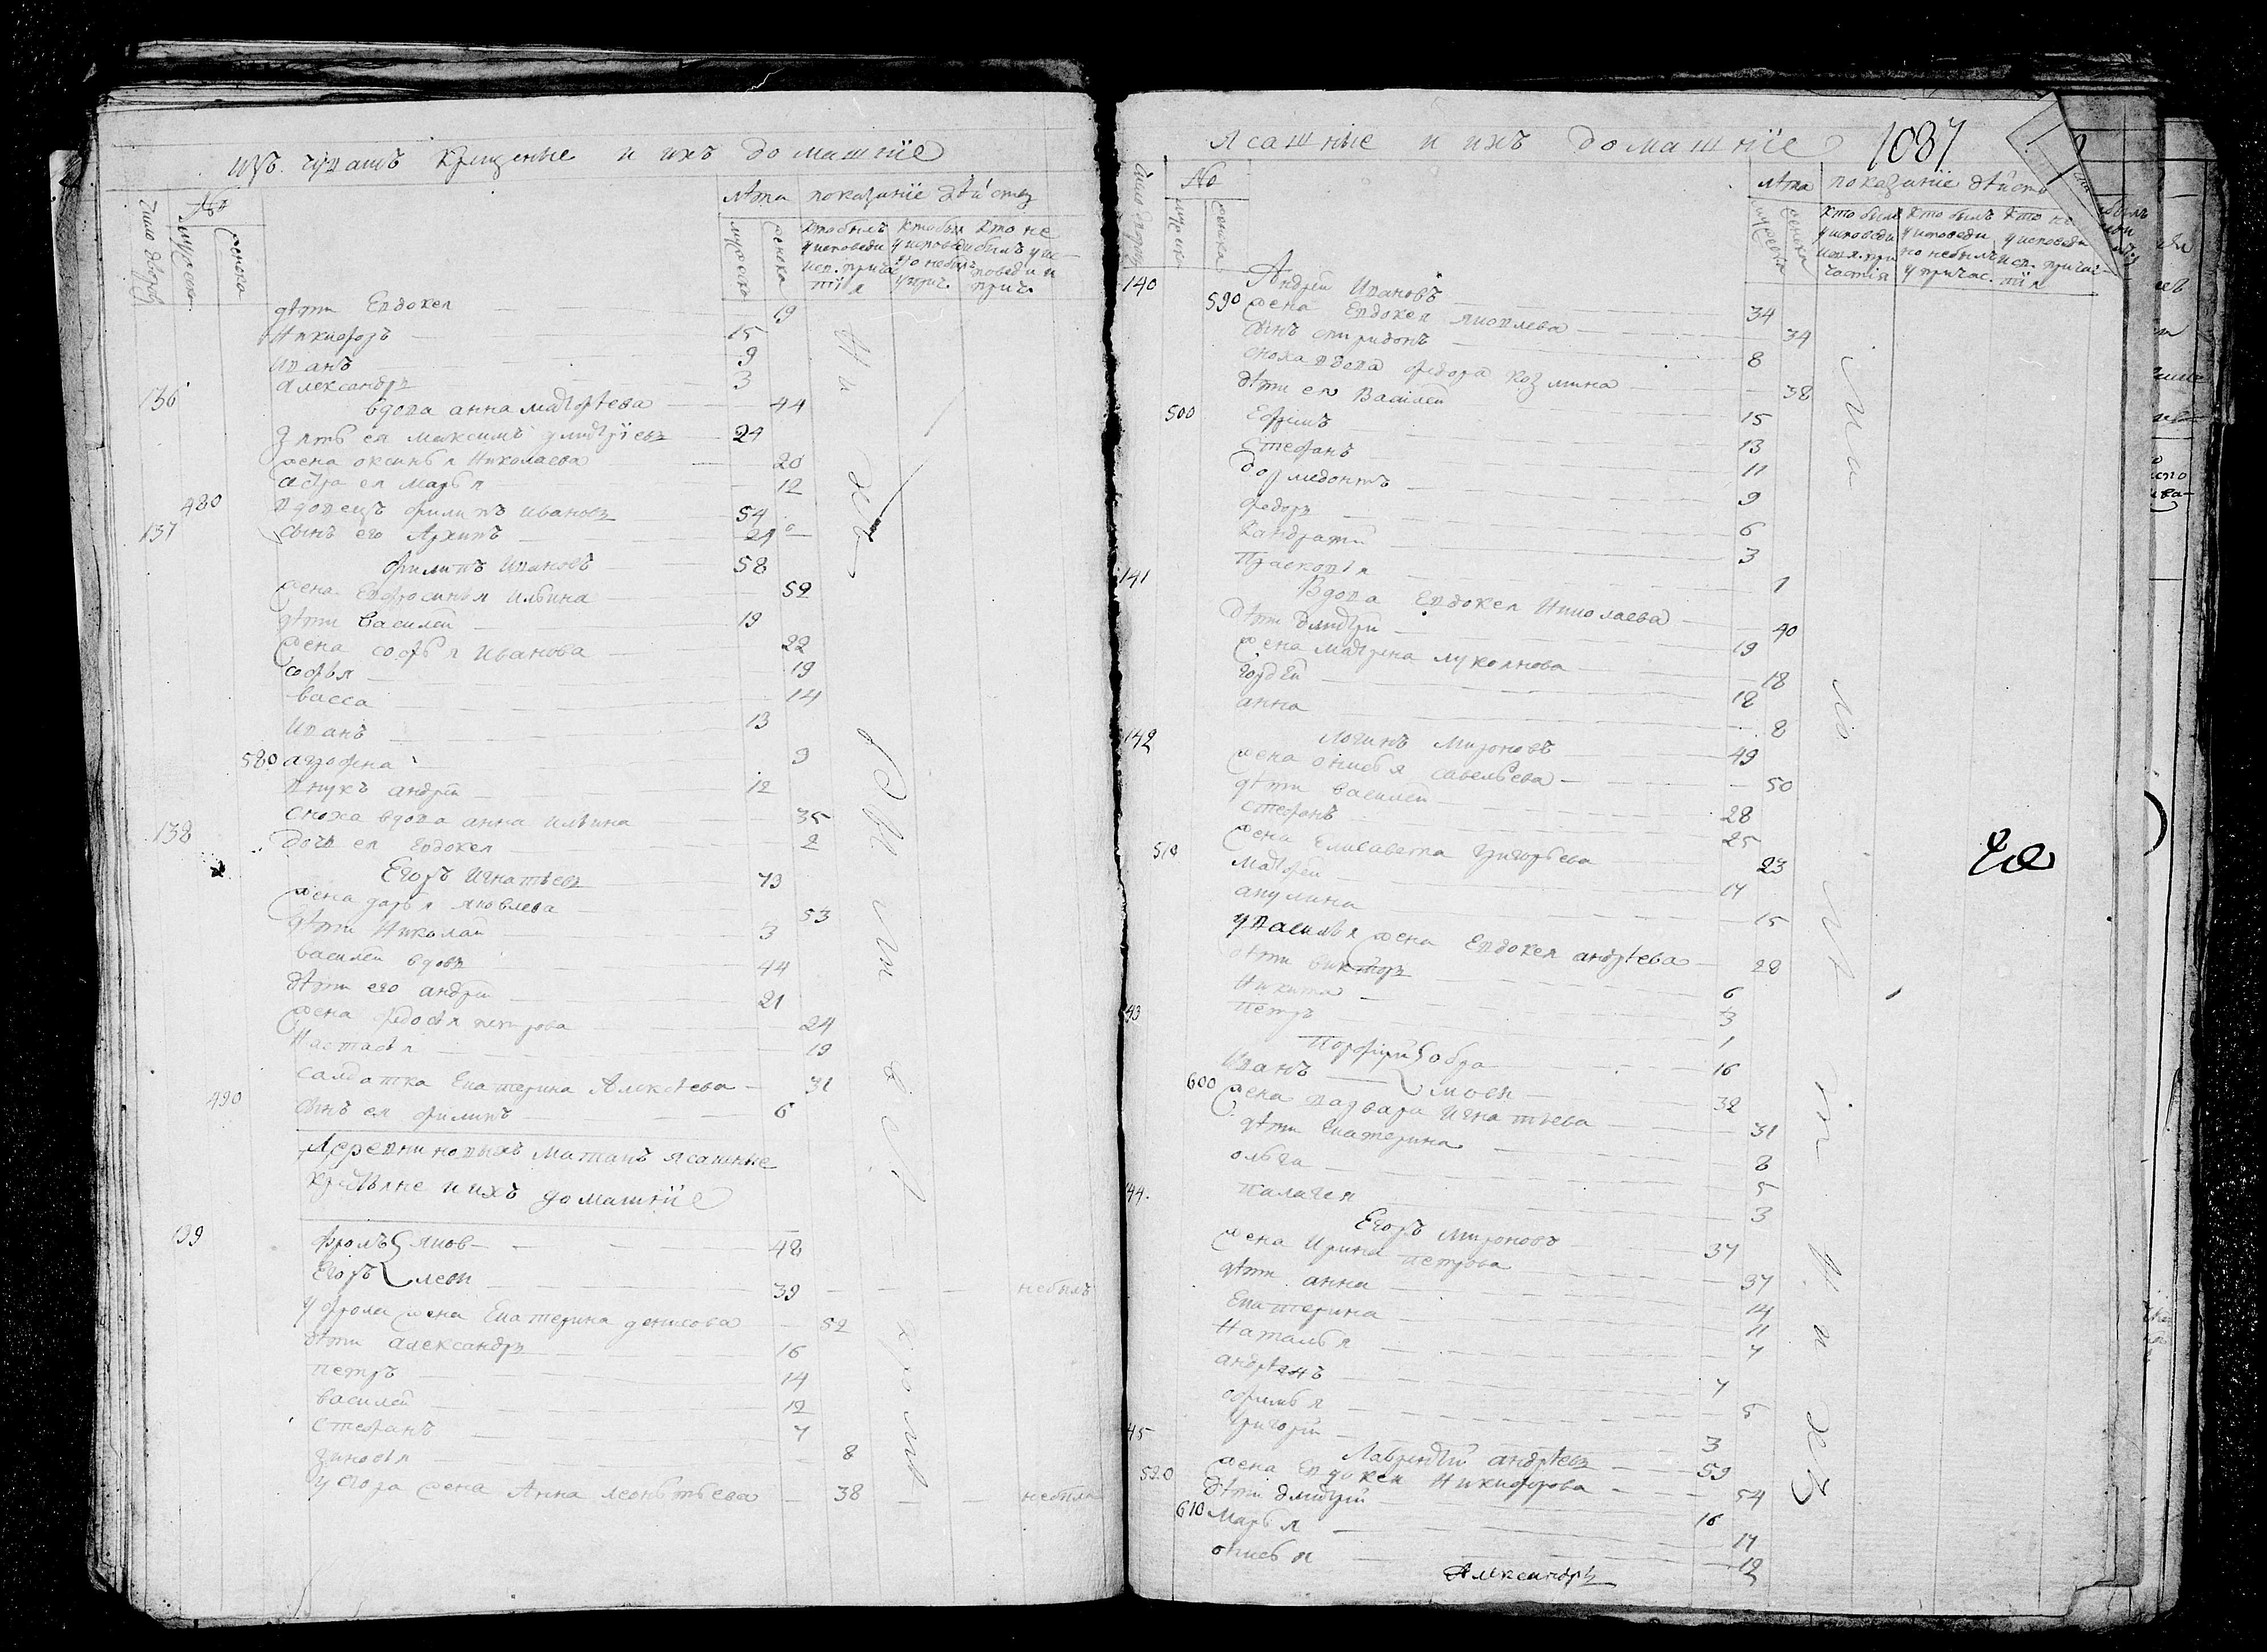 изъ чувашъ крещеные и ихъ домашнїе
№
лѣта показанїе дѣйств
число дворовъ
мужеска
женска
мужеска
женска
кто былъ у исповеди и св. прича тїя
кто былъ у исповеди но небылъ у прич.
кто не былъ у исповеди и прич.
дѣти Евдокея 19
Никифоръ 15
Иванъ 9
Александръ 3
136
вдова анна матѳѣева 44
зять ея максимъ дмитрїевъ 24
жена оксинья Николаева 20
сестра ея марья 12
480 вдовецъ филипъ ивановъ 54
137 сынъ его Архипъ 21
филипъ Ивановъ 58
жена Ефросинья Ильина 52
дѣти василей 19
жена софья иванова 22
софья 19
васса 14
Иванъ 13
580 агрофна 9
внукъ андрей 12
сноха вдова анна ильина 35
138 дочь ея Евдокея 2
Егоръ Игнатьевъ 73
жена дарья яковлева 53
дѣти Николай 3
василей вдовъ 44
дѣти его андрей 21
жена федосья петрова 24
Настасья 19
салдатка Екатерина Алексѣева 31
490 сынъ ея филипъ 6
Деревни новыхъ матакъ ясашные
крестьяне и ихъ домашнїе
139 фролъ яков- 48
Егоръ левы 39 небылъ
у фрола жена Екатерина денисова 52
дѣти александръ 16
петръ 14
василей 12
стефанъ 7
зиновья 8
у егора жена Анна леонтьева 38 небыла
ясашные и ихъ домашнїе 1087
№
лѣта показанїе дѣйств
число дворовъ
мужеска
женска
мужеска
женска
кто былъ у исповеди и св. причастїя
кто былъ у исповеди но небылъ у причас.
кто не у исповеди и св. причастїя
140 Андрей Ивановъ 34
590 жена Евдокея яковлева 34
сынъ спиридонъ 8
сноха вдова федора козмина 38
дѣти ея Василей 15
500 Ефимъ 13
Стефанъ 11
дормедонтъ 9
федоръ 6
Кандратей 3
Прасковья 1
141 Вдова Евдокея Николаева 40
дѣти дмитрей 19
жена матрена лукоянова 18
гордей 12
анна 8
142 логинъ мироновъ 49
жена онисья савельева 50
дѣти василей 28
стефанъ 25
жена Елисавета григорьева 23
510 матѳей 17
акулина 15
у василья жена Евдокея андрѣева 28
дѣти викторъ 6
Никита 3
петръ 1
43 Порфирей обра- 16
Иванъ мовы 32
600 жена варвара Игнатьева 31
дѣти Екатерина 8
ольга 5
палагея 3
44. Егоръ мироновъ 37
жена Ирина петрова 37
дѣти анна 14
Екатерина 11
Наталья 7
андрѣянъ 7
офимья 5
григорей 3
45 Лаврентей андрѣевъ 59
520 жена Евдокея Никифорова 54
дѣти дмитрей 16
610 марья 17
онисья 12
Александръ